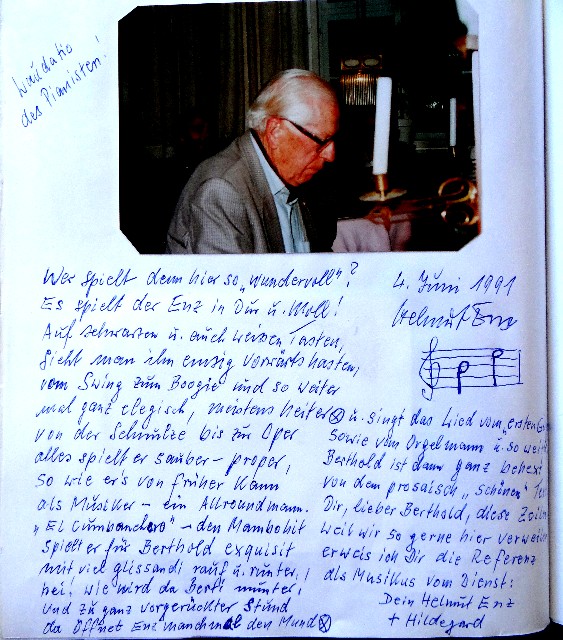 Laudatio
des Pianisten!
Wer spielt denn hier so „wundervoll"?
Es spielt der Enz in Dur u. Moll!
Auf schwarzen u. auch weissen Tasten,
sieht man ihn emsig vorwärts hasten,
vom Swing zum Boogie und so weiter
mal ganz elegisch, meistens heiter
von der Schnulze bis zur Oper
alles spielt er sauber - proper,
so wie er's von früher kann
als Musiker - ein Allroundmann.
„El Cumbanchero" - den Mambohit
spielt er für Berthold exquisit
mit viel glissandi rauf u. runter,
hei! wie wird da Bertl munter,
und zu ganz vorgerückter Stund
da öffnet Enz manchmal den Mund ⊗
4. Juni 1991
Helmut Enz
⊗ u. singt das Lied vom „ersten
sowie vom Orgelmann u. so weit
Berthold ist dann ganz behext
von dem prosaisch „schönen" Text
Dir, lieber Berthold, diese Zeilen
weil wir so gerne hier verweilen
erweis ich Dir die Referenz
als Musikus vom Dienst:
Dein Helmut Enz
+ Hildegard